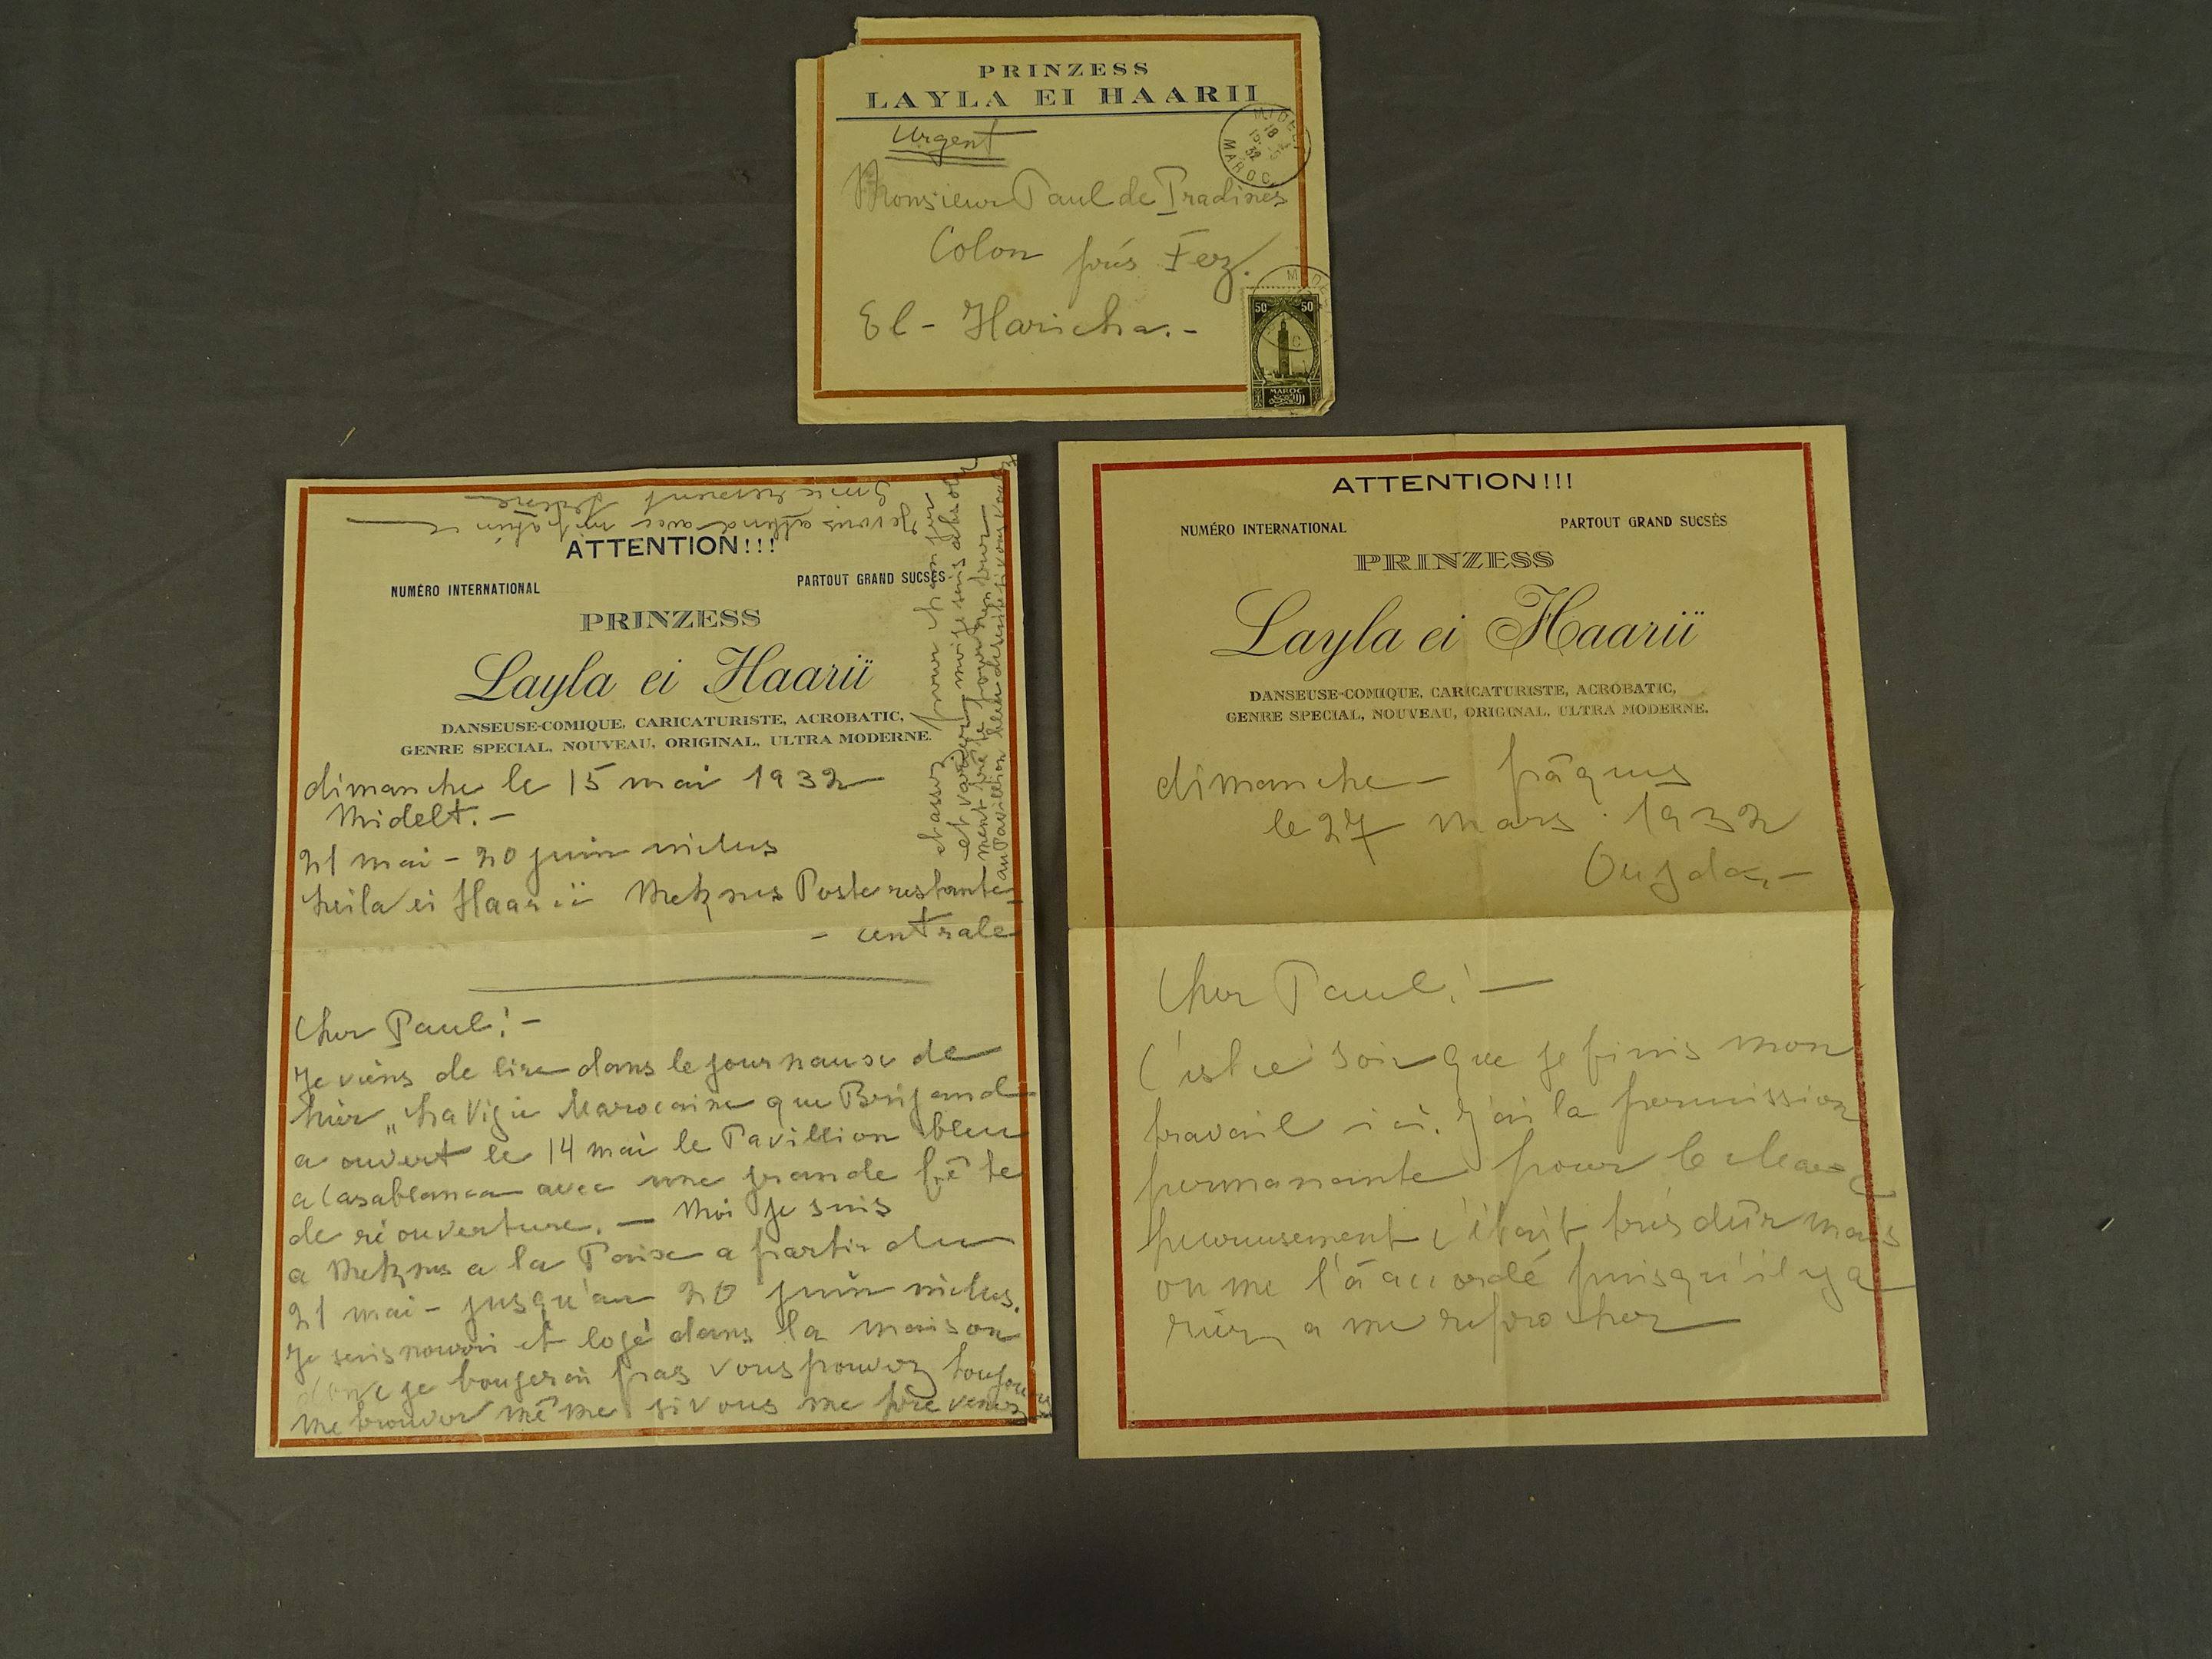 PRINZESS
LAYLA EI HAARII
Urgent
Monsieur Paul de Pradines
Colon prés Fez.
El - Haricha.-
MIDELT
MAROC
50 50
MAROC
ATTENTION!!!
NUMÉRO INTERNATIONAL
PARTOUT GRAND SUCSÈS
PRINZESS
Layla ei Haarii
DANSEUSE-COMIQUE, CARICATURISTE, ACROBATIC,
GENRE SPECIAL, NOUVEAU, ORIGINAL, ULTRA MODERNE.
dimanche le 15 mai 1932
Midelt.-
21 mai - 20 juin inclus
Leila ei Haarii Meknes Poste restante
- centrale
Cher Paul! -
Je viens de lire dans le journaux de
hier „La Vigie Marocaine que Brijand
a ouvert le 14 mai le Pavillion bleu
a Casablanca avec une grande fête
de réouverture. - Moi je suis
a Meknes a la Poise a partir du
21 mai - jusqu'au 20 juin inclus.
Je suis nourri et logé dans la maison
donc je bougerai pas vous pouvez toujours
me trouver même si vous me prévenez
et assez pour
et moi je suis
au Pavillion bleu si vous
Je vous attend avec
ATTENTION!!!
NUMÉRO INTERNATIONAL
PARTOUT GRAND SUCSÈS
PRINZESS
Layla ei Haarii
DANSEUSE-COMIQUE, CARICATURISTE, ACROBATIC,
GENRE SPECIAL, NOUVEAU, ORIGINAL, ULTRA MODERNE.
dimanche - pâques
le 27 mars 1932
Oujda.-
Cher Paul! -
C'est ce soir que je finis mon
travail ici. J'ai la permission
permanante pour le Maroc
heureusement c'était trés dûr mais
on me l'a accordé puisqu'il y a
rien a me reprocher